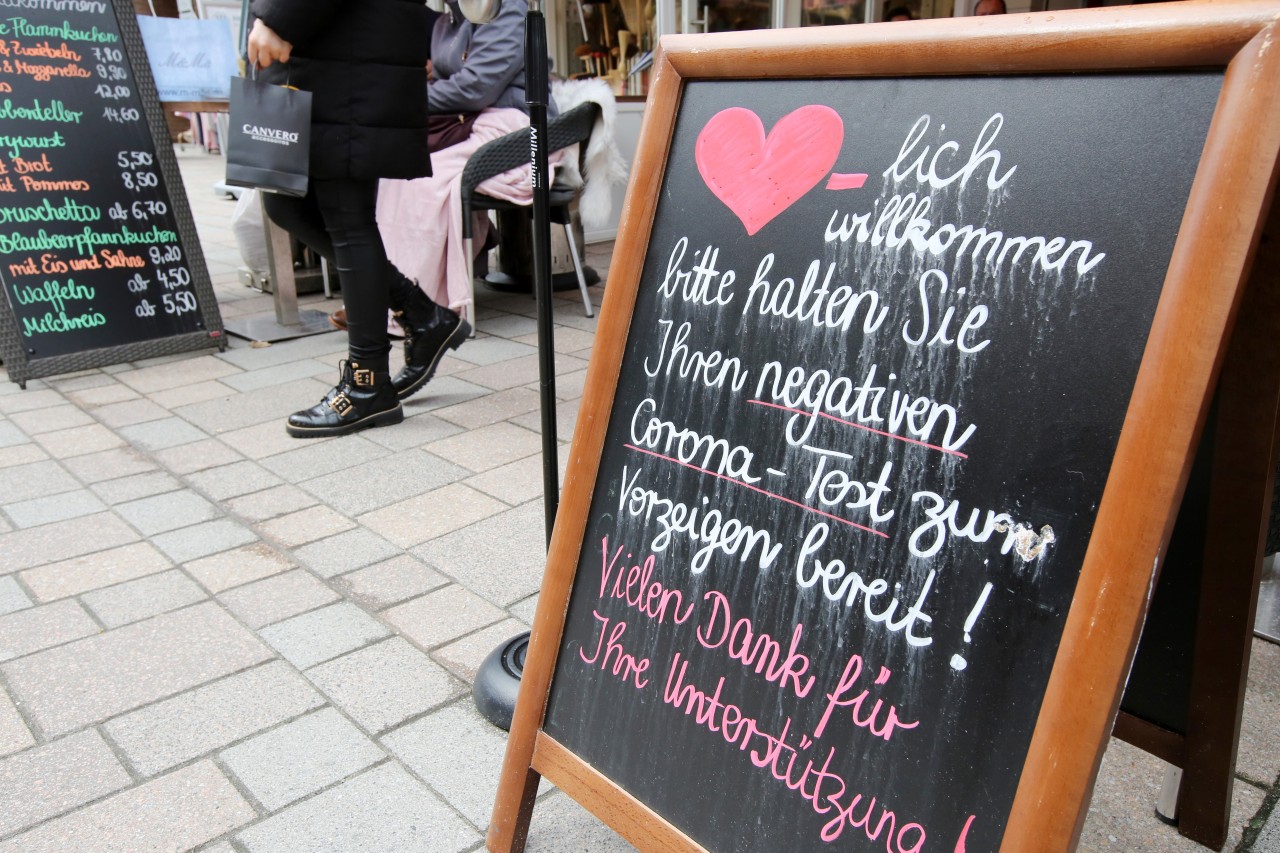 kommen
Flammkuchen
& Zwiebeln 7,80
& Mozzarella 9,90
12,00
14,60
5,50
Brot
mit Pommes 8,50
Bruschetta ab 6,70
Blaubeerpfannkuchen
mit Eis und Sahne 9,20
Waffeln ab 4,50
Milchreis ab 5,50
CANVERO
Millenium
- lich
willkommen
bitte halten Sie
Ihren negativen
Corona-Test zum
Vorzeigen bereit!
Vielen Dank für
Ihre Unterstützung!